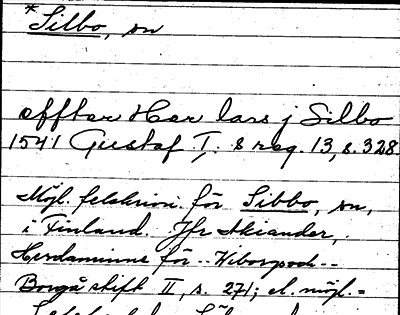 *Silbo, sn
effter Har lars j Silbo
1541 Gustaf I:s reg. 13, s. 328
Möjl. felskrivn. för Sibbo, sn,
i Finland. Jfr Akiander,
Herdaminne för Wiborgs och
Borgå stift II, s. 271; el. möjl.